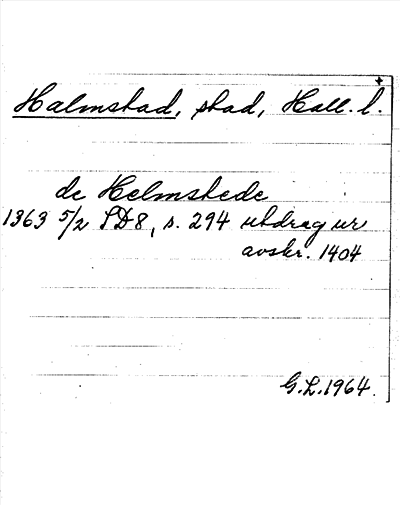 Halmstad, stad, Hall. l.
de Helmstede
1363 5/2 SD8, s. 294 utdrag ur
avskr. 1404
G.L.1964.